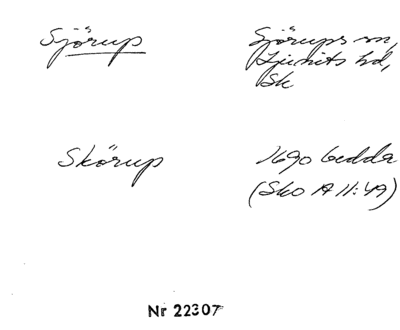 Sjörup
Sjörups sn,
Ljunits hd,
Sk
Skörup
1690 Gedda
(Sko A II:49)
Nr 22307